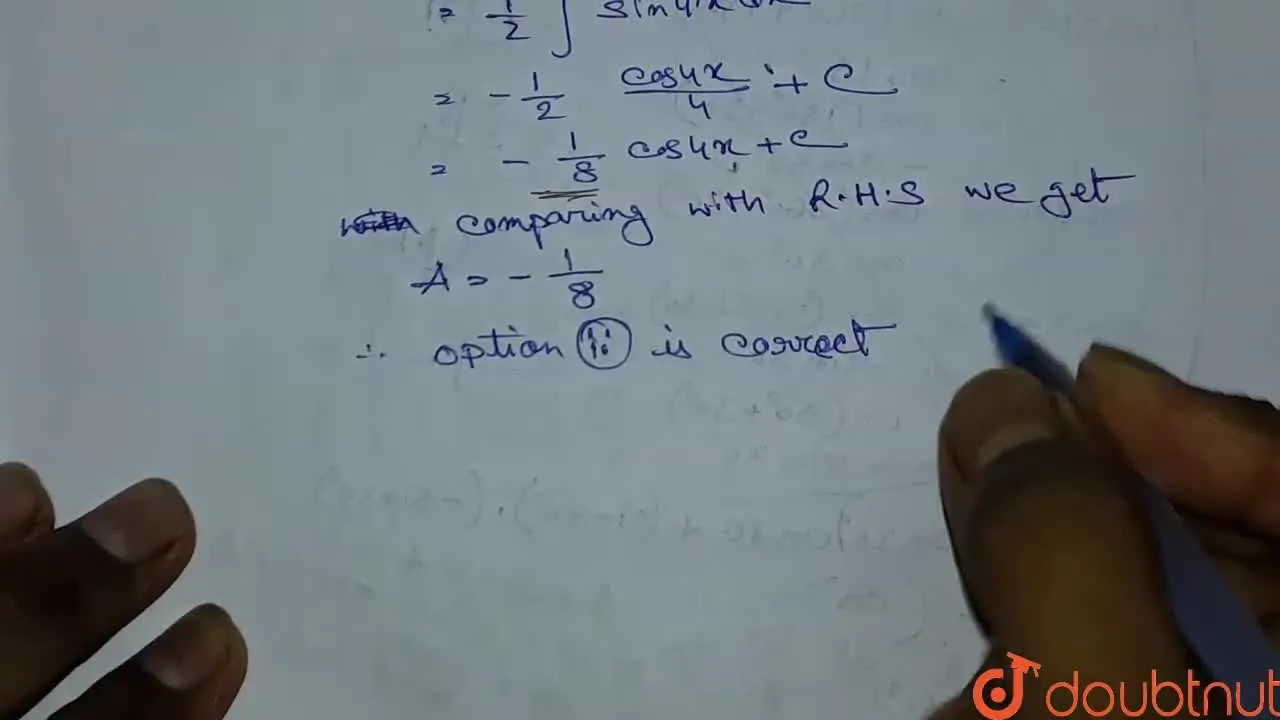 = 1/2 ∫ sin4x dx
= - 1/2 cos4x/4 + C
= - 1/8 cos4x + C
comparing with R.H.S we get
A = - 1/8
∴ option ii is correct
doubtnut